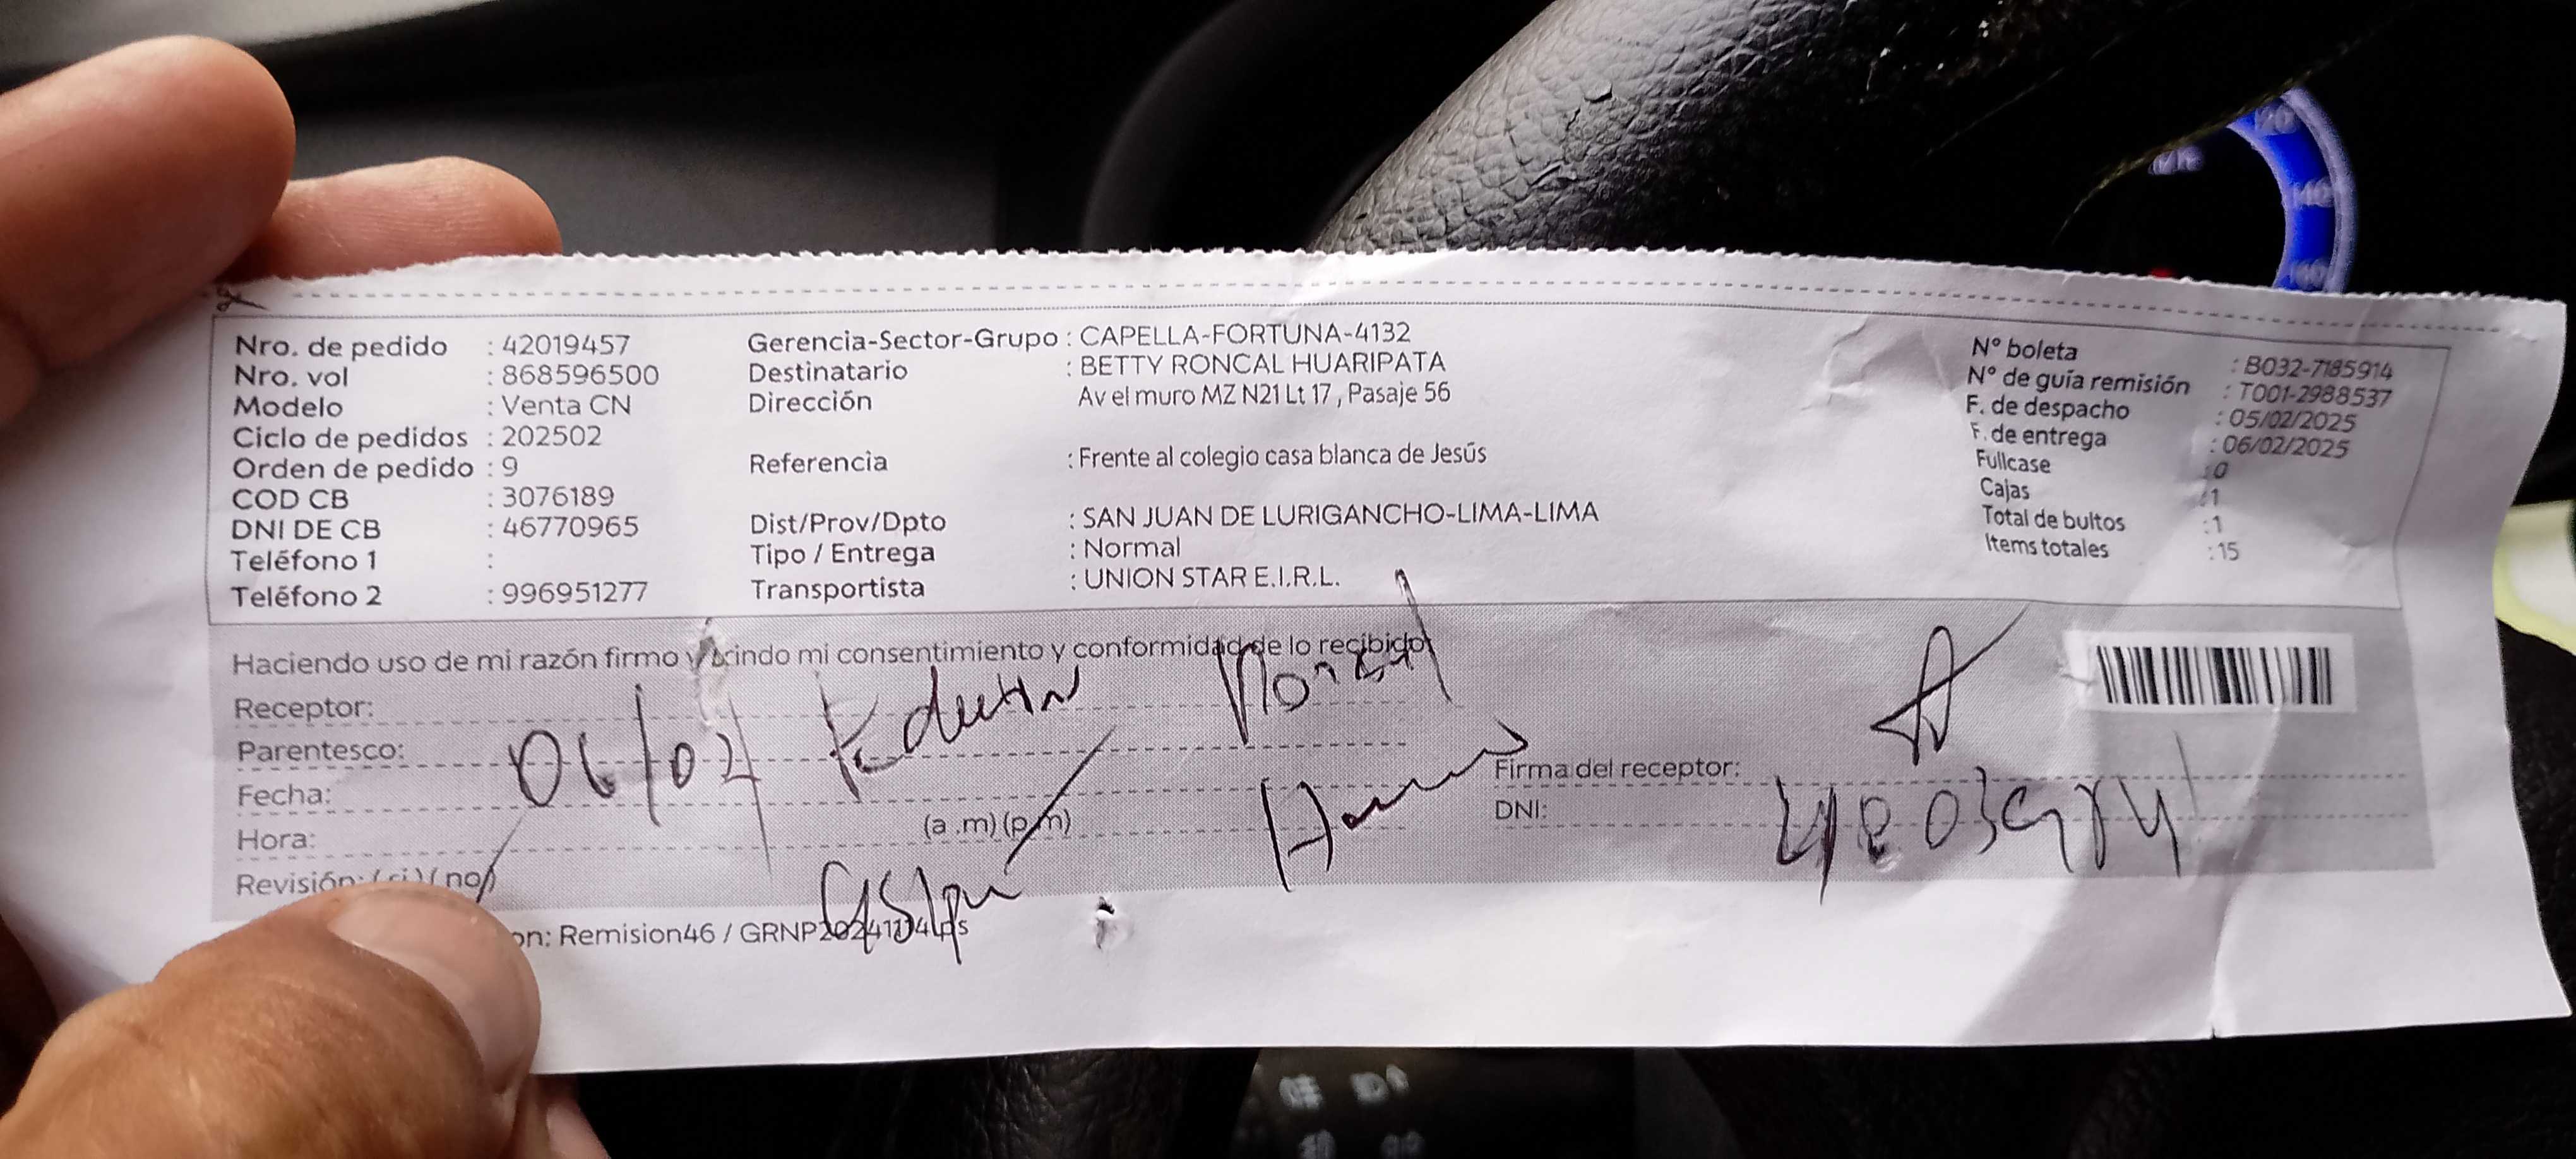 Nro. de pedido : 42019457
Nro. vol : 868596500
Modelo : Venta CN
Ciclo de pedidos : 202502
Orden de pedido : 9
COD CB : 3076189
DNI DE CB : 46770965
Teléfono 1 :
Teléfono 2 : 996951277
Gerencia-Sector-Grupo : CAPELLA-FORTUNA-4132
Destinatario : BETTY RONCAL HUARIPATA
Dirección Av el muro MZ N21 Lt 17 , Pasaje 56
Referencia : Frente al colegio casa blanca de Jesús
Dist/Prov/Dpto : SAN JUAN DE LURIGANCHO-LIMA-LIMA
Tipo / Entrega : Normal
Transportista : UNION STAR E.I.R.L.
N° boleta : B032-7185914
N° de guía remisión : T001-2988537
F. de despacho : 05/02/2025
F. de entrega : 06/02/2025
Fullcase : 0
Cajas : 1
Total de bultos : 1
Items totales : 15
Haciendo uso de mi razón firmo y brindo mi consentimiento y conformidad de lo recibido
Receptor:
Parentesco:
Fecha: 06/02
Hora: (a .m) (p.m)
Revisión: (si) (no)
Firma del receptor:
DNI:
on: Remision46 /